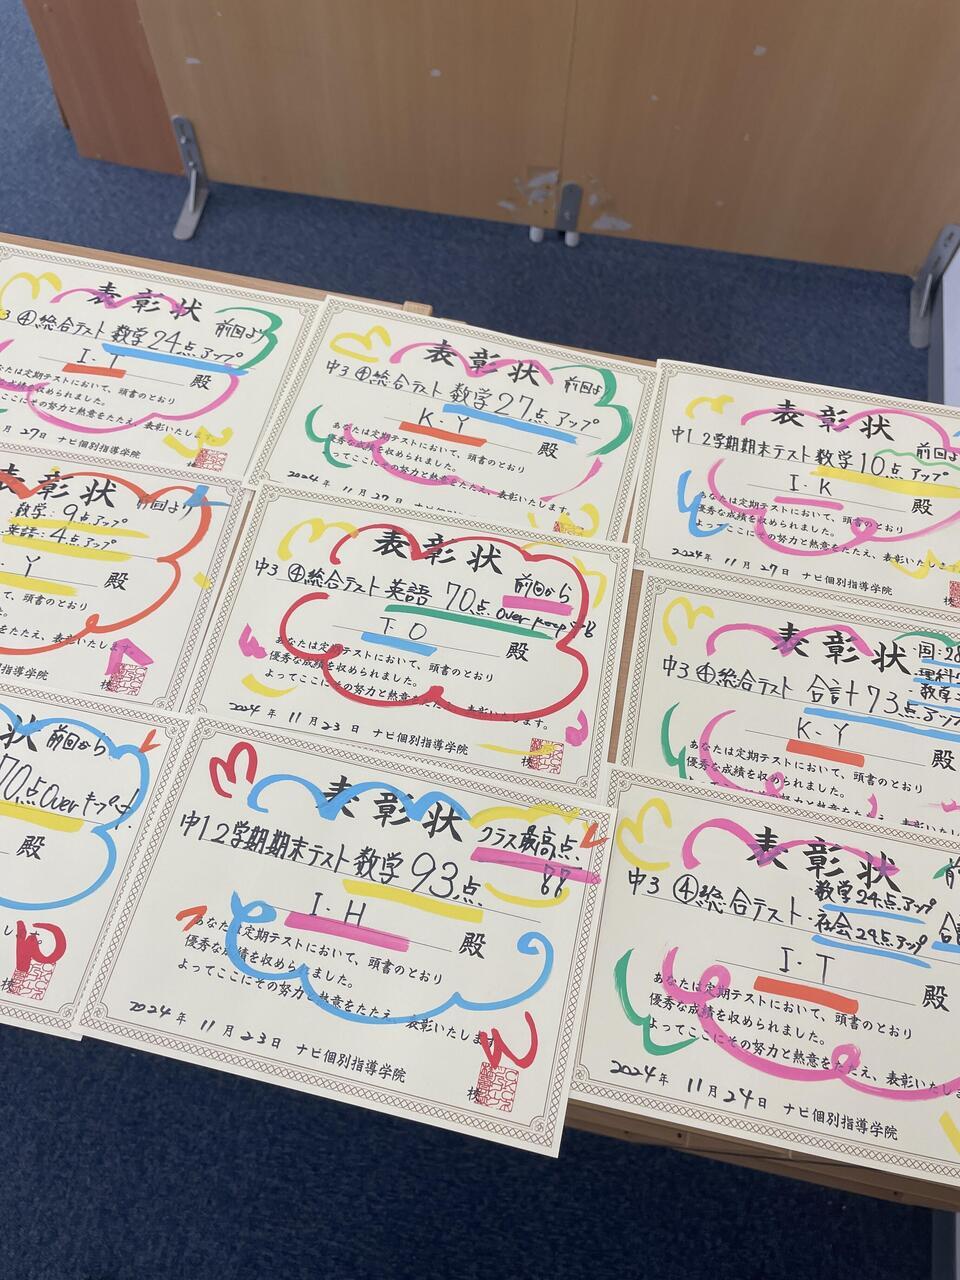 表彰状
前回より
3 ④総合テスト 数学24点アップ
I・T 殿
なたは定期テストにおいて、頭書のとおり
成績を収められました。
ここにその努力と熱意をたたえ、表彰いたします。
月 27日 ナビ個別指導学院
表彰状
前回より
中3 ④総合テスト 数学27点アップ
K・Y 殿
あなたは定期テストにおいて、頭書のとおり
優秀な成績を収められました。
よってここにその努力と熱意をたたえ、表彰いたします。
2024年 11月 27日
表彰状
前回より
中1 2学期期末テスト 数学10点アップ
I・K 殿
あなたは定期テストにおいて、頭書のとおり
優秀な成績を収められました。
よってここにその努力と熱意をたたえ、表彰いたします。
2024年 11月 27日 ナビ個別指導学院
表彰状
前回より
数学:9点アップ
英語:4点アップ
Y 殿
て、頭書のとおり
た。
熱意をたたえ、表彰いたします。
ナビ個別指導学院
表彰状
中3 ④総合テスト 英語 70点 前回から
Over keep
T O 殿
あなたは定期テストにおいて、頭書のとおり
優秀な成績を収められました。
よってここにその努力と熱意をたたえ、表彰いたします。
2024年 11月23日 ナビ個別指導学院
表彰状
国:28
理科
数学
中3 ④総合テスト 合計73点アップ
K・Y 殿
あなたは定期テストにおいて、頭書のとおり
優秀な成績を収められました。
状 前回から
70点Overキープ!
殿
します。
表彰状
クラス最高点!!
中1 2学期期末テスト 数学93点
I・H 殿
あなたは定期テストにおいて、頭書のとおり
優秀な成績を収められました。
よってここにその努力と熱意をたたえ、表彰いたします。
2024年 11月23日 ナビ個別指導学院
表彰状
前
中3 ④総合テスト
・数学24点アップ
・社会24点アップ
I・T 殿
あなたは定期テストにおいて、頭書のとおり
優秀な成績を収められました。
よってここにその努力と熱意をたたえ、表彰いたしま
2024年 11月24日 ナビ個別指導学院